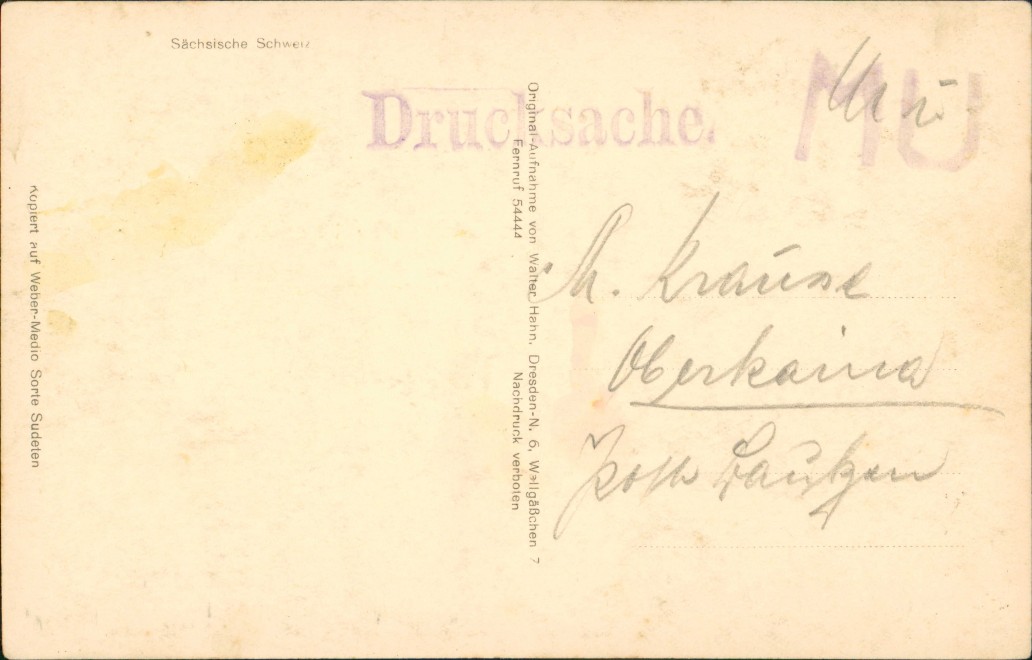 Sächsische Schweiz
Drucksache.
MU
Original-Aufnahme von Walter Hahn, Dresden-N. 6, Wallgäßchen 7
Fernruf 54444 Nachdruck verboten
Kopiert auf Weber-Medio Sorte Sudeten
Krause
Oberkaina
Post Bautzen